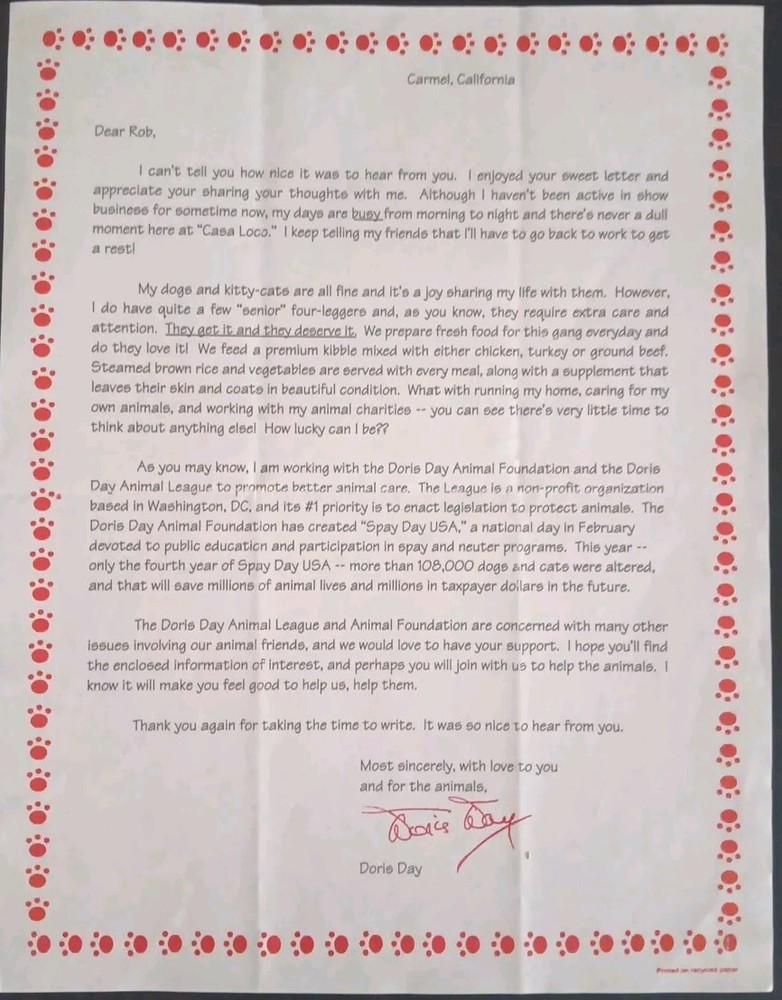 Carmel, California
Dear Rob,
I can't tell you how nice it was to hear from you. I enjoyed your sweet letter and
appreciate your sharing your thoughts with me. Although I haven't been active in show
business for sometime now, my days are busy from morning to night and there's never a dull
moment here at "Casa Loco." I keep telling my friends that I'll have to go back to work to get
a rest!
My dogs and kitty-cats are all fine and it's a joy sharing my life with them. However,
I do have quite a few "senior" four-leggers and, as you know, they require extra care and
attention. They get it and they deserve it. We prepare fresh food for this gang everyday and
do they love it! We feed a premium kibble mixed with either chicken, turkey or ground beef.
Steamed brown rice and vegetables are served with every meal, along with a supplement that
leaves their skin and coats in beautiful condition. What with running my home, caring for my
own animals, and working with my animal charities -- you can see there's very little time to
think about anything else! How lucky can I be??
As you may know, I am working with the Doris Day Animal Foundation and the Doris
Day Animal League to promote better animal care. The League is a non-profit organization
based in Washington, DC, and its #1 priority is to enact legislation to protect animals. The
Doris Day Animal Foundation has created "Spay Day USA," a national day in February
devoted to public education and participation in spay and neuter programs. This year --
only the fourth year of Spay Day USA -- more than 108,000 dogs and cats were altered,
and that will save millions of animal lives and millions in taxpayer dollars in the future.
The Doris Day Animal League and Animal Foundation are concerned with many other
issues involving our animal friends, and we would love to have your support. I hope you'll find
the enclosed information of interest, and perhaps you will join with us to help the animals. I
know it will make you feel good to help us, help them.
Thank you again for taking the time to write. It was so nice to hear from you.
Most sincerely, with love to you
and for the animals,
Doris Day
Doris Day
Printed on recycled paper